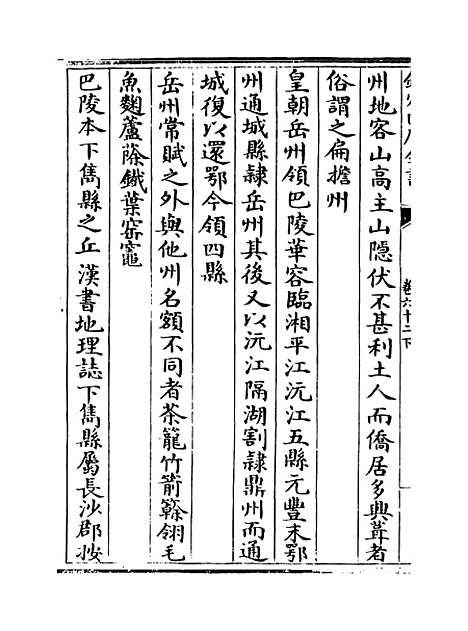 卷六十二下
州地客山高主山隱伏不甚利土人而僑居多興葺者
俗謂之扁擔州
皇朝岳州領巴陵華容臨湘平江沅江五縣元豐末鄂
州通城縣隸岳州其後又以沅江隔湖割隸鼎州而通
城復以還鄂今領四縣
岳州常賦之外與他州名額不同者茶籠竹箭簳翎毛
魚麴蘆蕟鐵葉窑竈
巴陵本下雋縣之丘漢書地理誌下雋縣屬長沙郡按